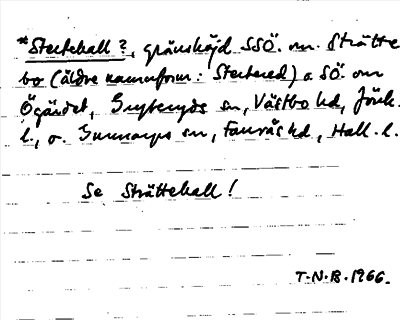 *Sterteball?, gränshöjd SSÖ. om Strätte
bo (äldre namnform: Stertered) o SÖ. om
Ögärdet, Gryteryds sn, Västbo hd, Jönk.
l., o. Gunnarps sn, Faurås hd, Hall. l.
Se Strätteball!
T.N.B. 1966.